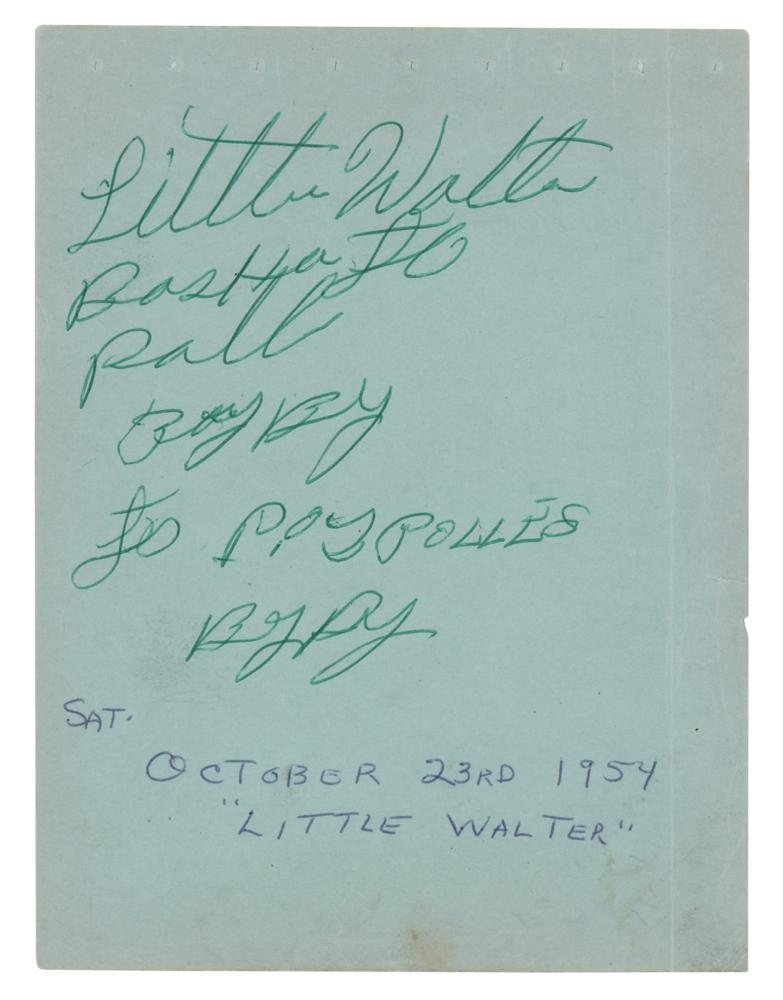 Little Walter
BasHa to
Pall
Bay By
to PAY POLLES
By By
SAT.
OCTOBER 23RD 1954
"LITTLE WALTER"